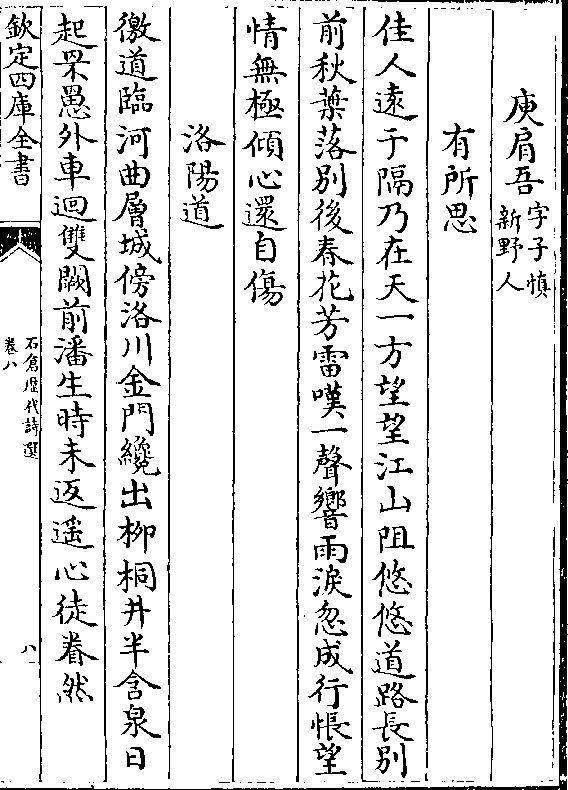 庾肩吾字子慎新野人
有所思
佳人遠于隔乃在天一方望望江山阻悠悠道路長別
前秋葉落別後春花芳雷嘆一聲響雨淚忽成行悵望
情無極傾心還自傷
洛陽道
徼道臨河曲層城傍洛川金門纔出柳桐井半含泉日
起罘罳外車迴雙闕前潘生時未返遥心徒眷然
欽定四庫全書
石倉歴代詩選
卷八
八